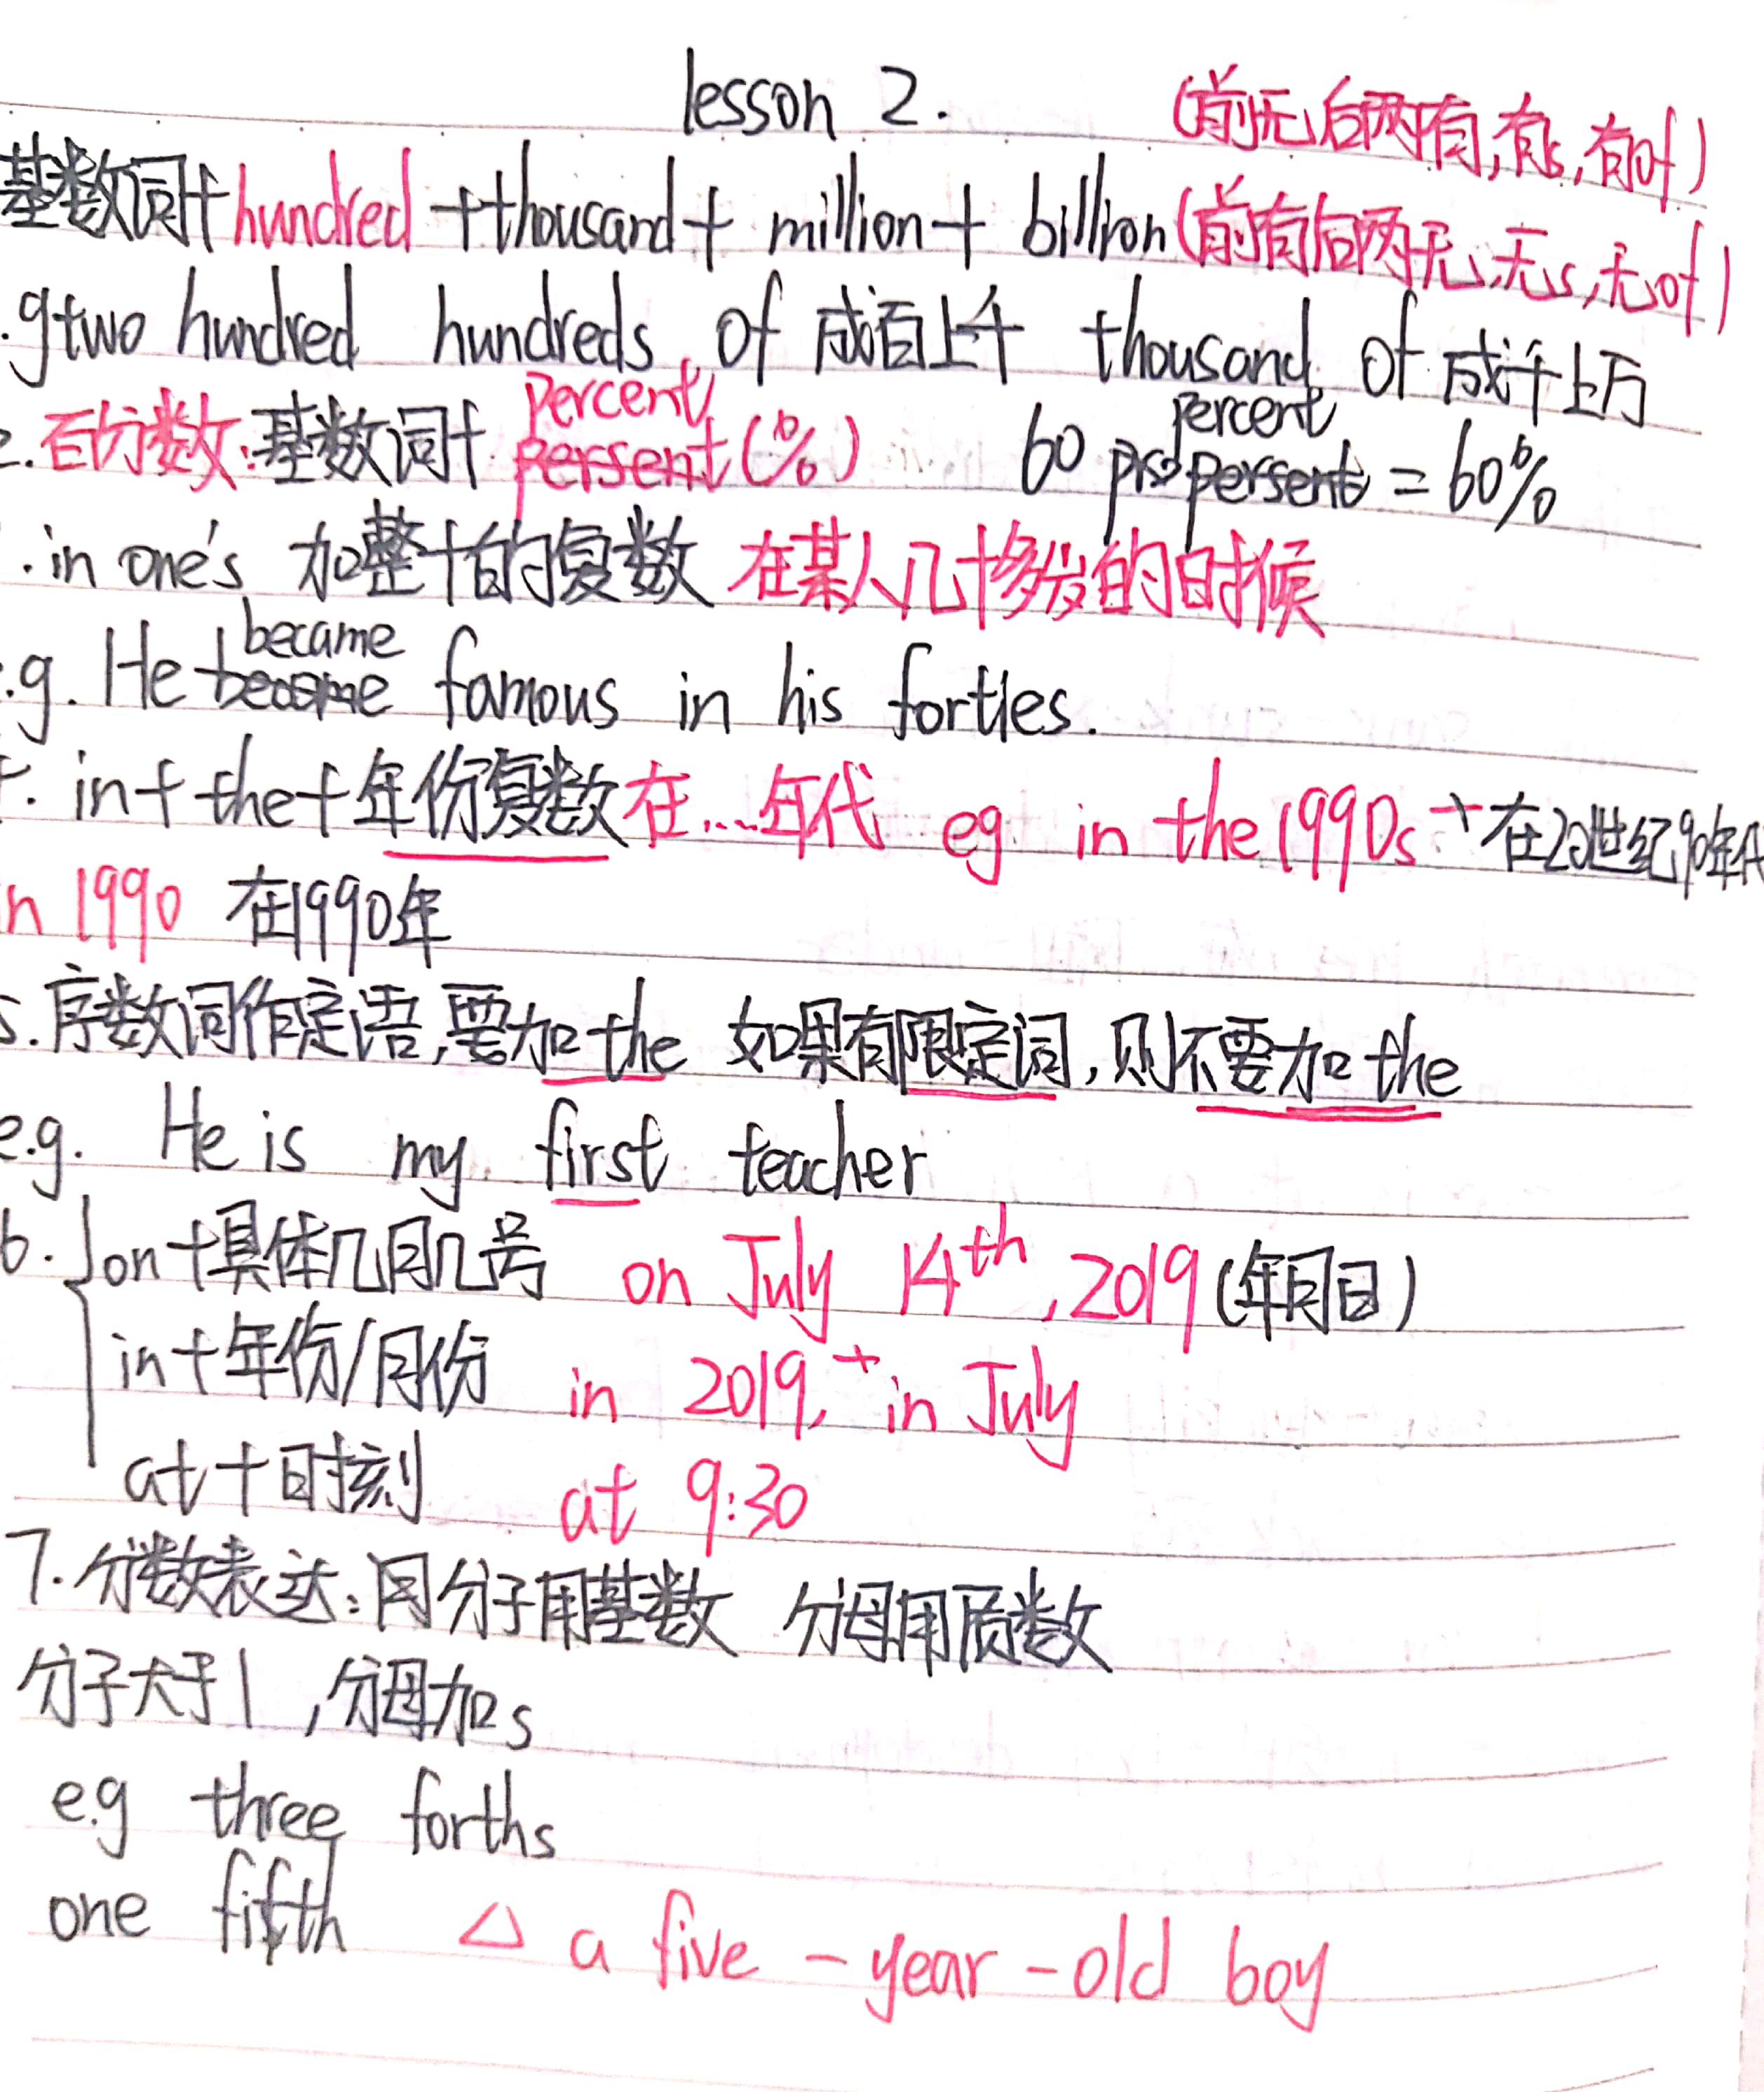 lesson 2.
(前无后两有,有s,有of)
基数词+hundred +thousand+ million+ billion(前有后两无,无s,无of)
.g two hundred hundreds of 成百上千 thousand of 成千上万
percent percent
2.百分数:基数词+ persent(%) 60 persent = 60%
.in one's 加整十的复数 在某人几十多岁的时候
became
.g. He become famous in his forties.
. in+the+年份复数 在....年代 eg in the 1990s 在20世纪90年代
n 1990 在1990年
5.序数词作定语,要加the 如果有限定词,则不要加the
e.g. He is my first teacher
6. on+具体几月几号 on July 14th,2019(年月日)
in+年份/月份 in 2019, in July
at+时刻 at 9:30
7.分数表达: 分子用基数 分母用质数
分子大于1,分母加s
e.g three forths
one fifth △ a five-year-old boy